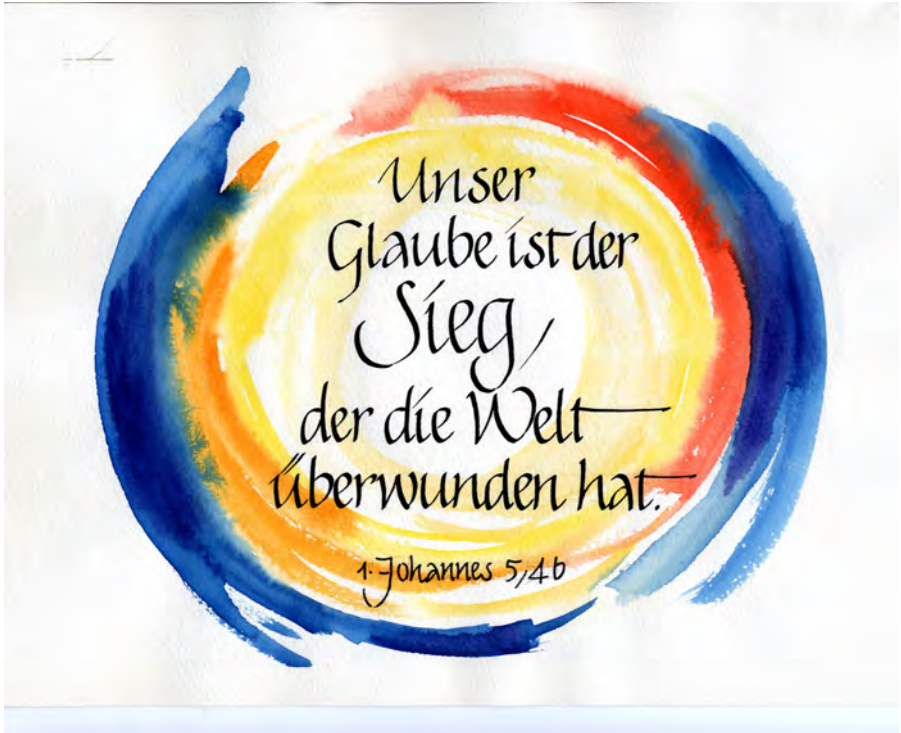 Unser
Glaube ist der
Sieg,
der die Welt
überwunden hat.
1. Johannes 5,4b